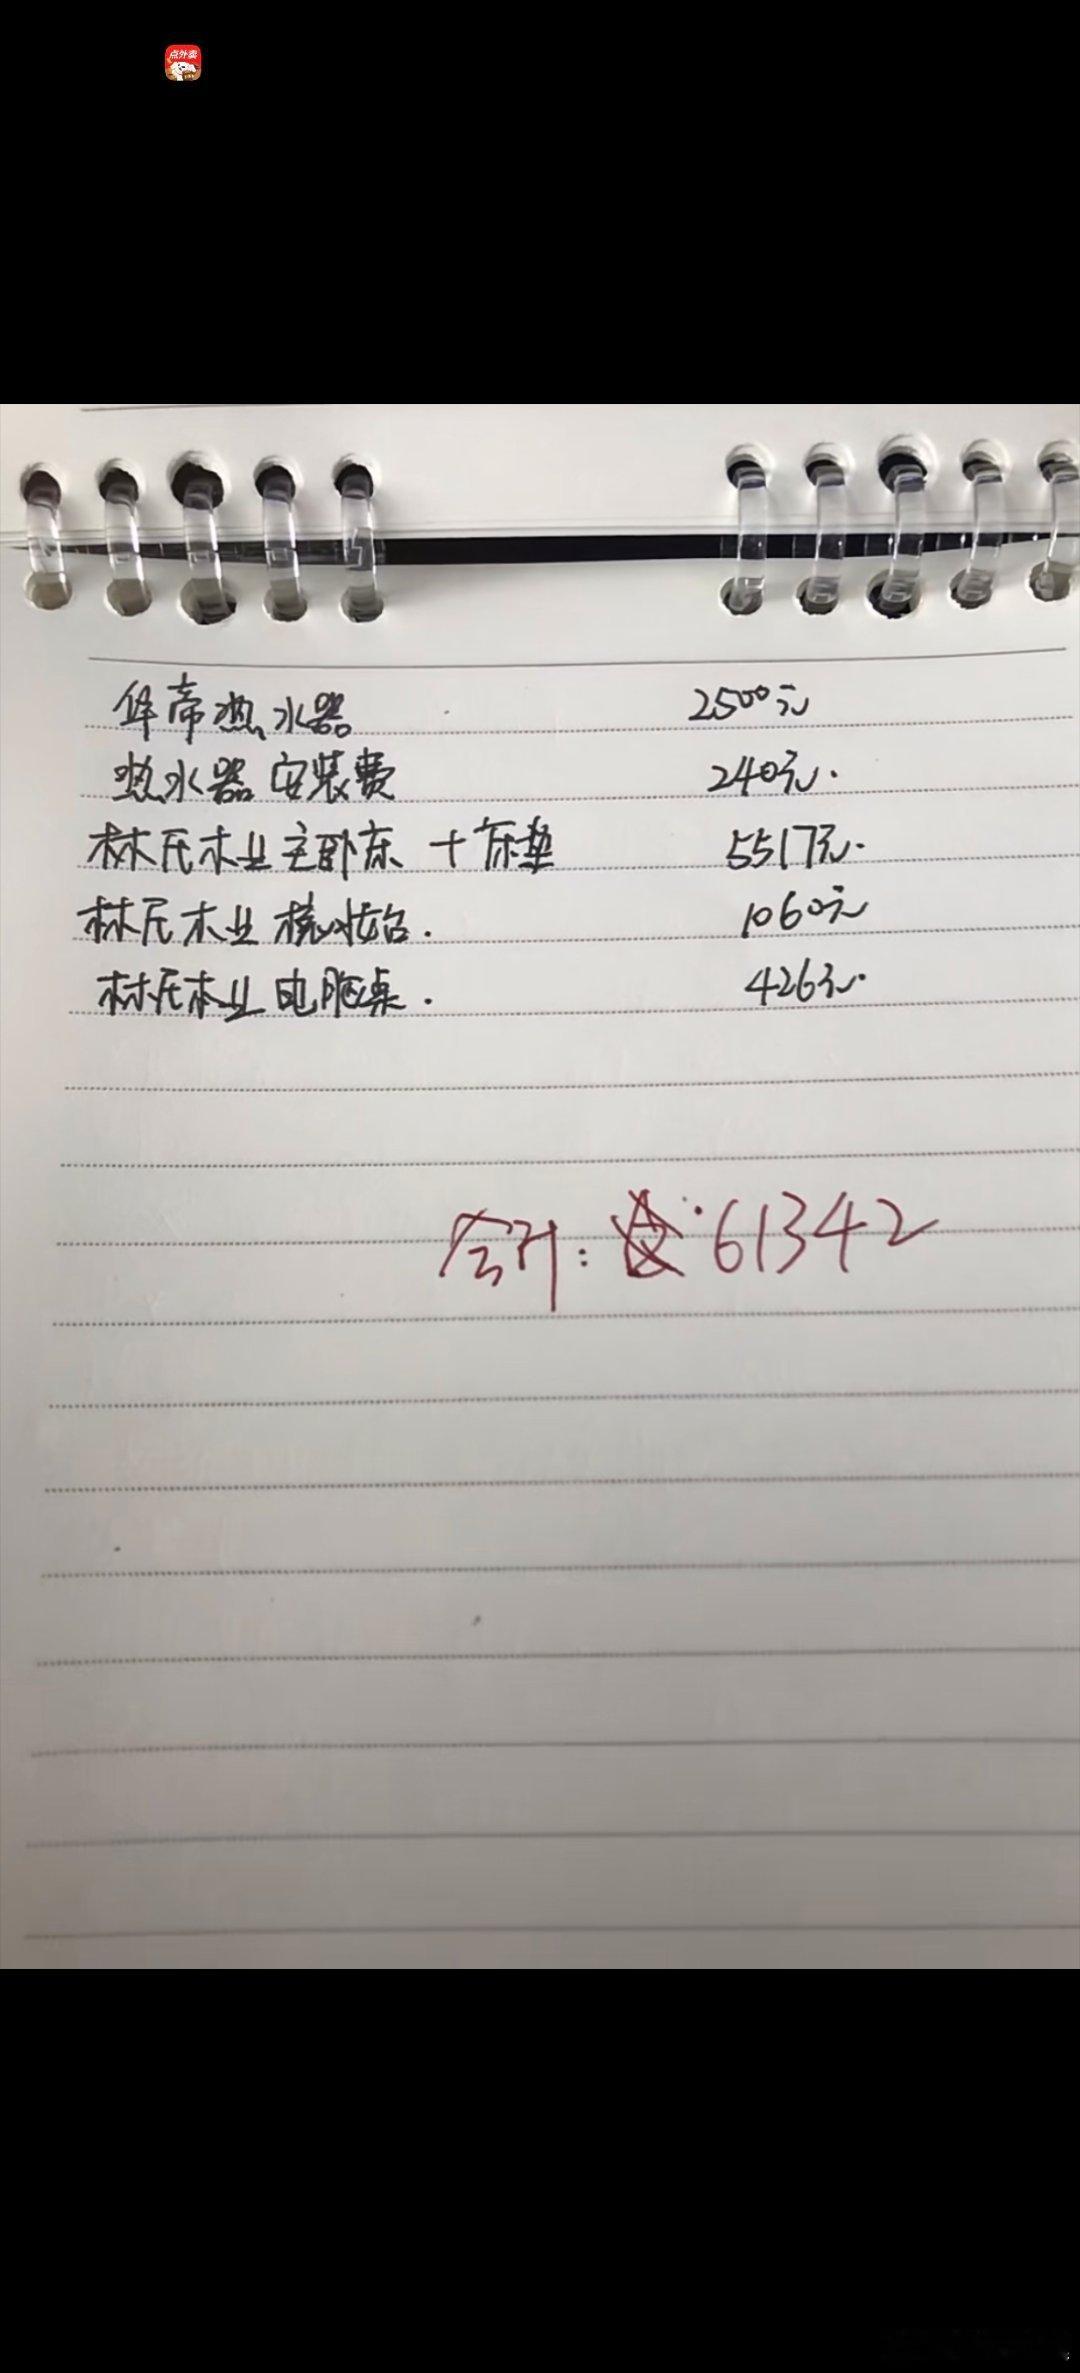 点外卖
华帝热水器 2500元
热水器安装费 240元.
林氏木业主卧床 + 床垫 5517元.
林氏木业 梳妆台. 1060元
林氏木业 电脑桌. 426元.
合计: 61342